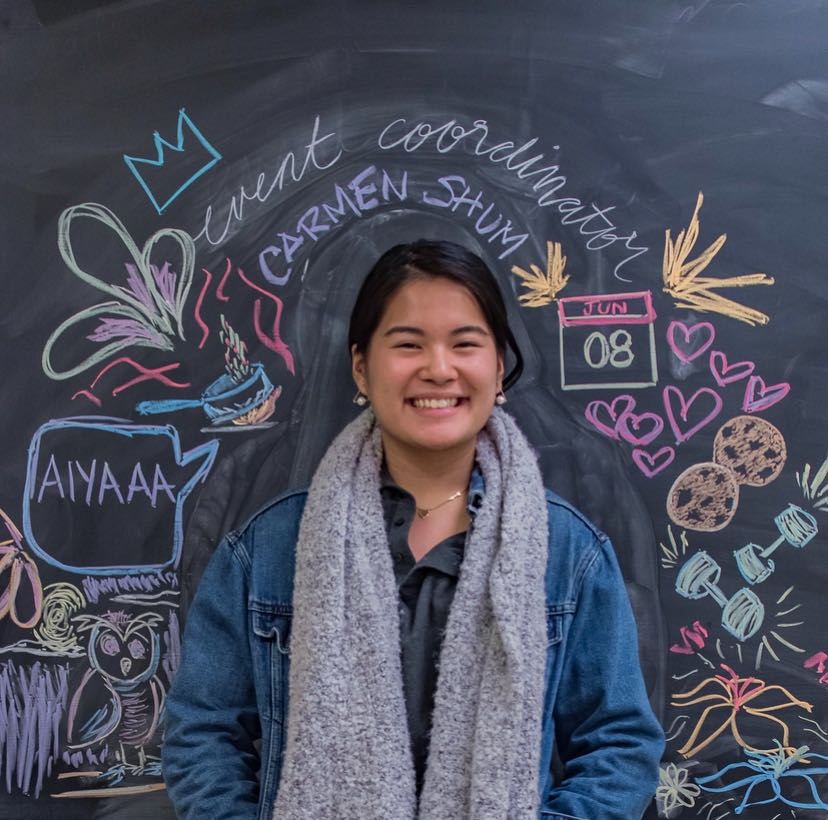 event coordinator
CARMEN SHUM
JUN
08
AIYAAA